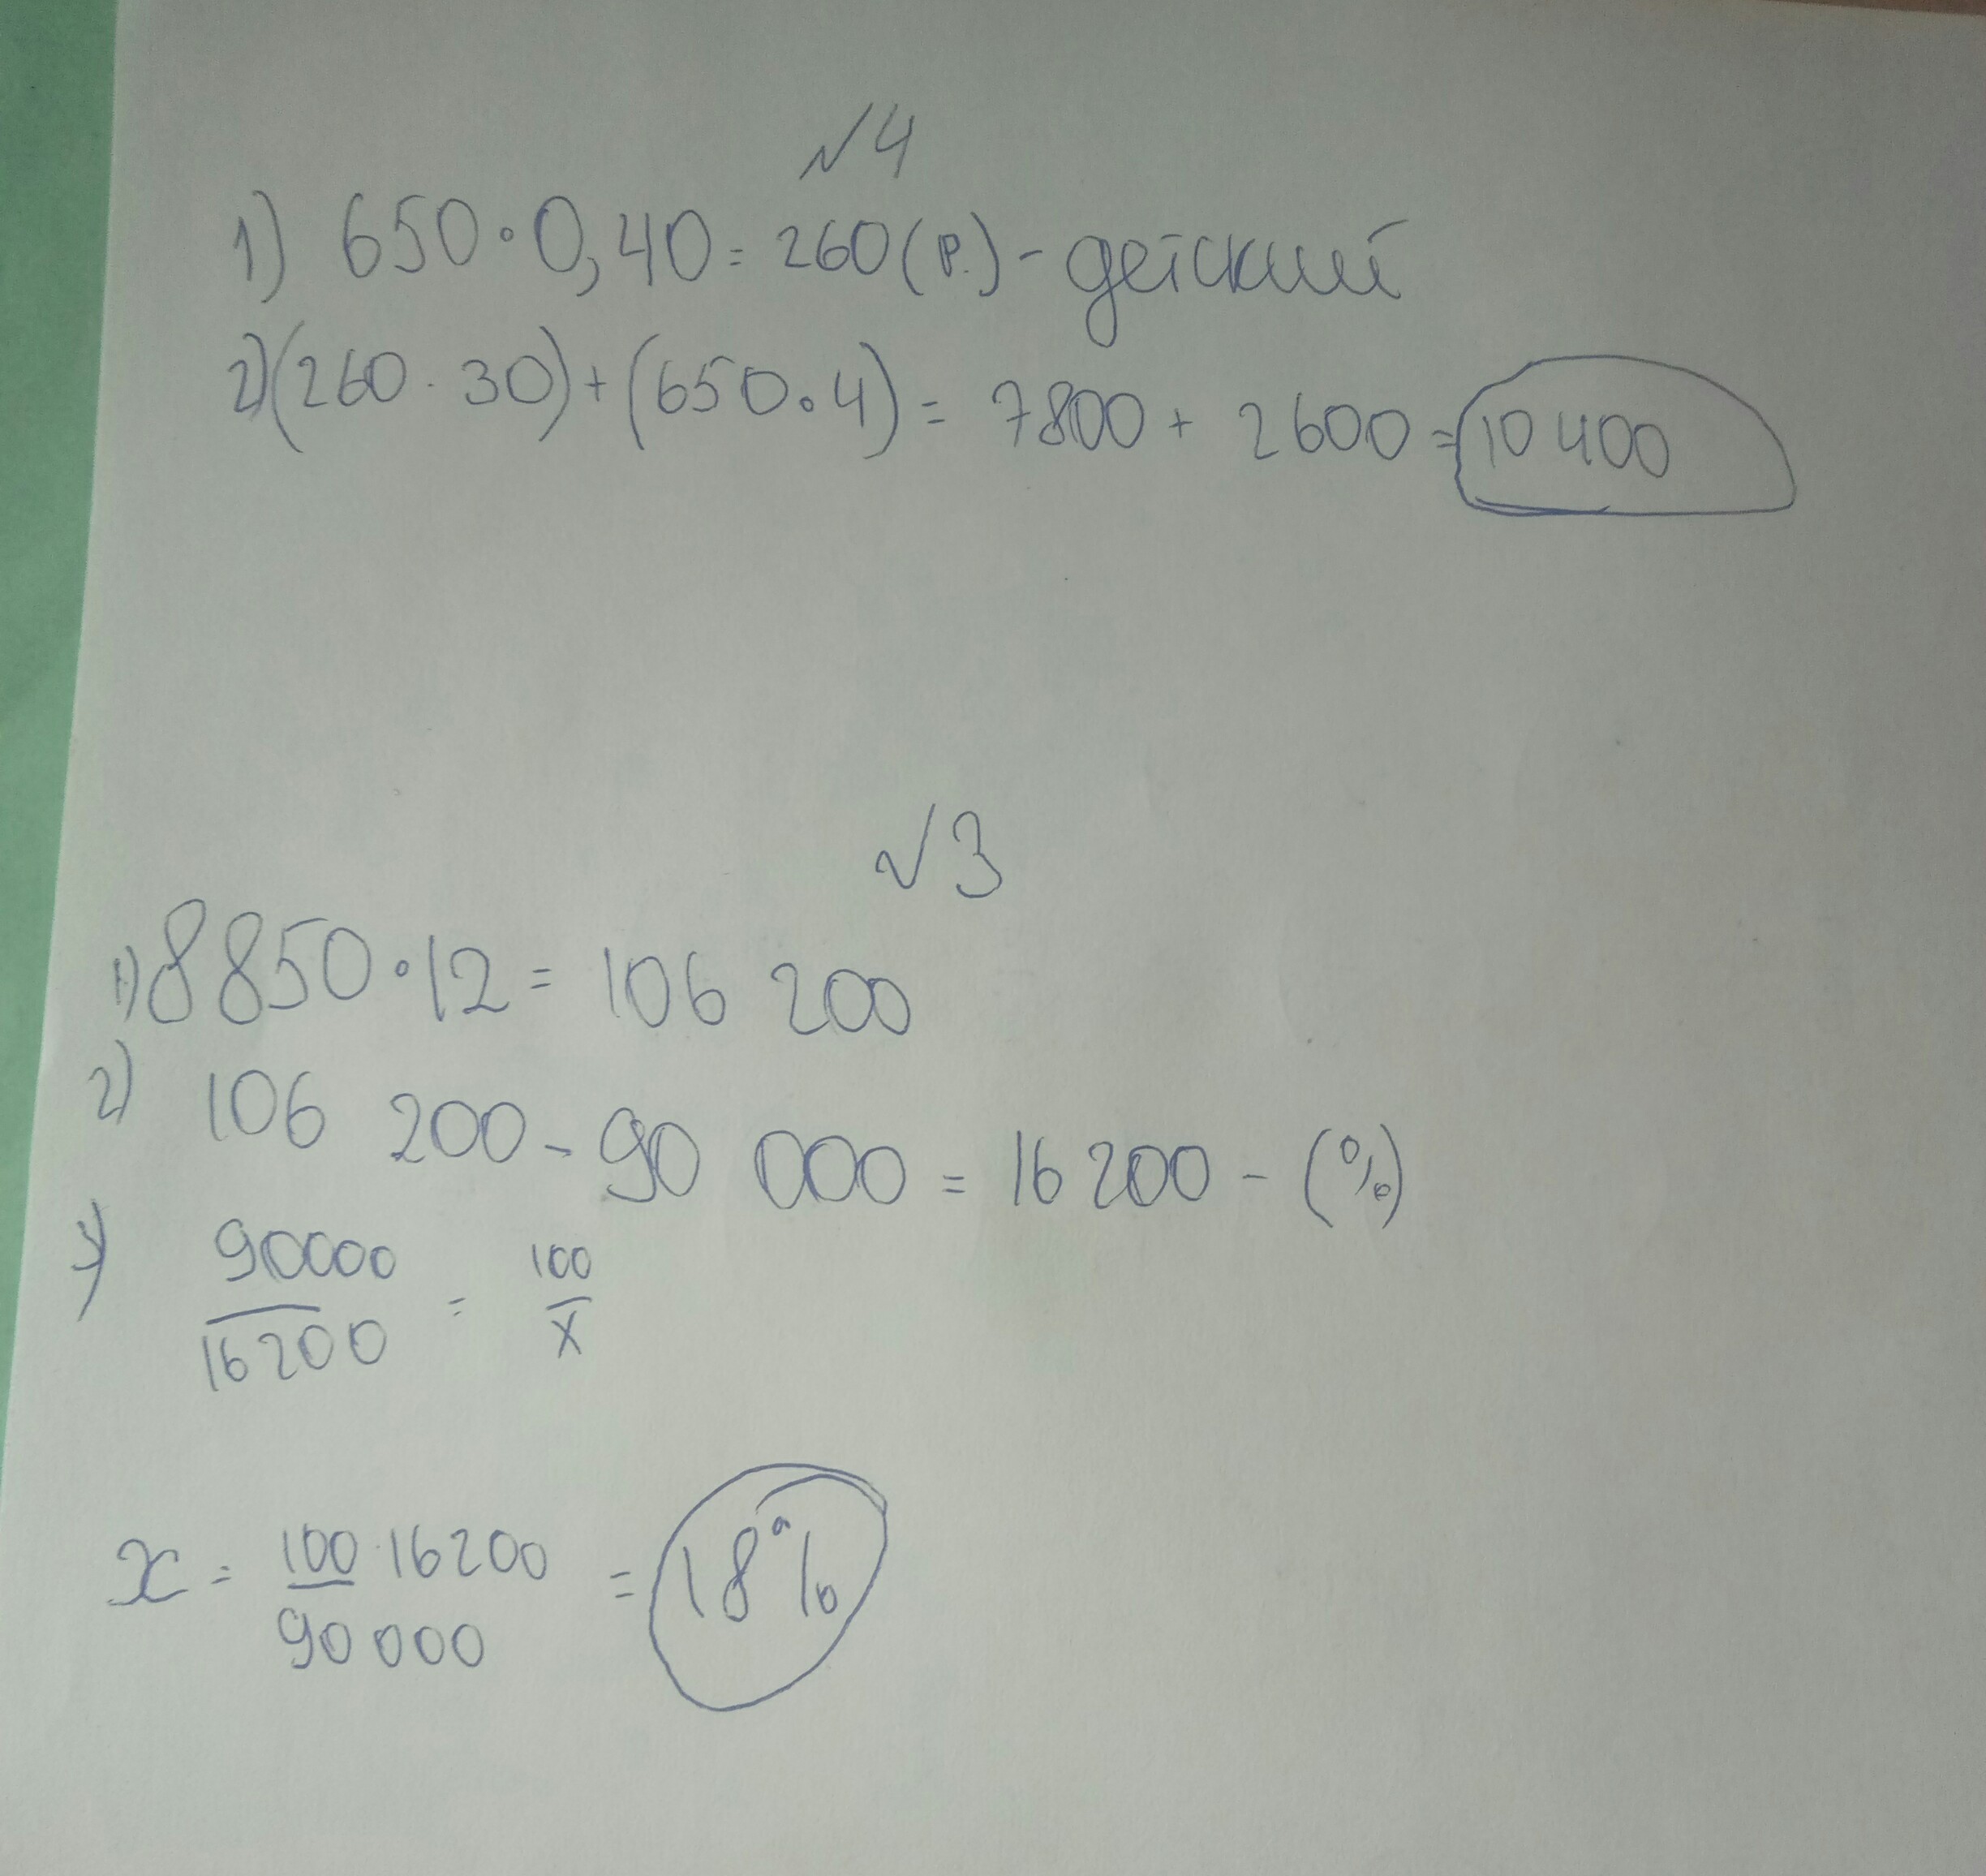 №4
1) 650·0,40=260(р.)-детский
2)(260·30)+(650·4)=7800+2600=10400
√3
1)8850·12=106 200
2) 106 200-90 000=16200-(%)
3) 90000/16200=100/x
x=100·16200/90000=18%